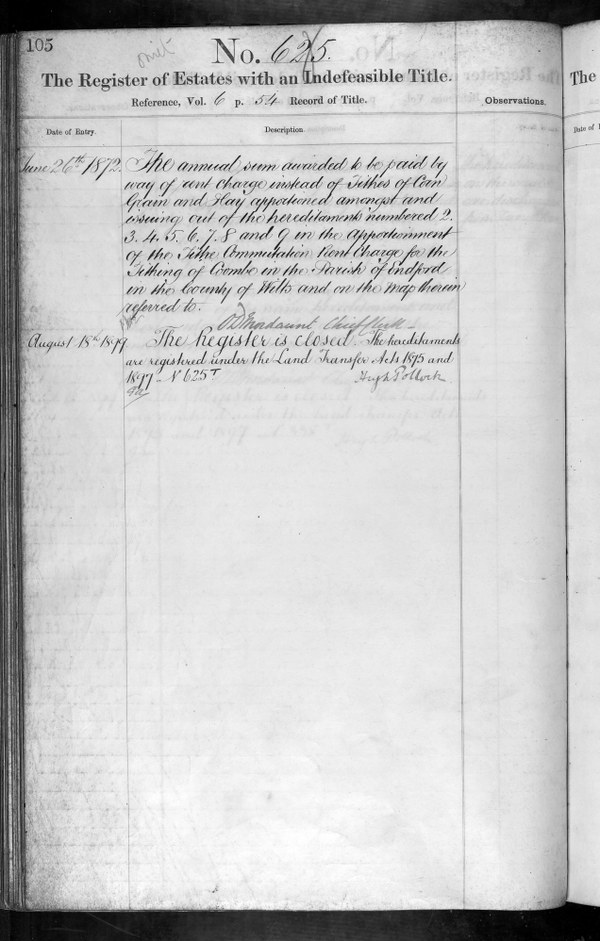 105
No. 625.
The Register of Estates with an Indefeasible Title.
Reference, Vol. 6 p. 54 Record of Title.
Observations.
Date of Entry.
Description.
June 26th 1872.
The annual sum awarded to be paid by
way of rent charge instead of Tithes of Corn
Grain and Hay apportioned amongst and
issuing out of the hereditaments numbered 2.
3. 4. 5. 6. 7. 8 and 9 in the Apportionment
of the Tithe Commutation Rent Charge for the
Tithing of Combe in the Parish of Endford
in the County of Wilts and on the Map therein
referred to.
Mordaunt Chief Clerk
August 18th 1899
The Register is closed. The hereditaments
are registered under the Land Transfer Acts 1875 and
1897 – No 625T
Hugh Pollock
The
Date of